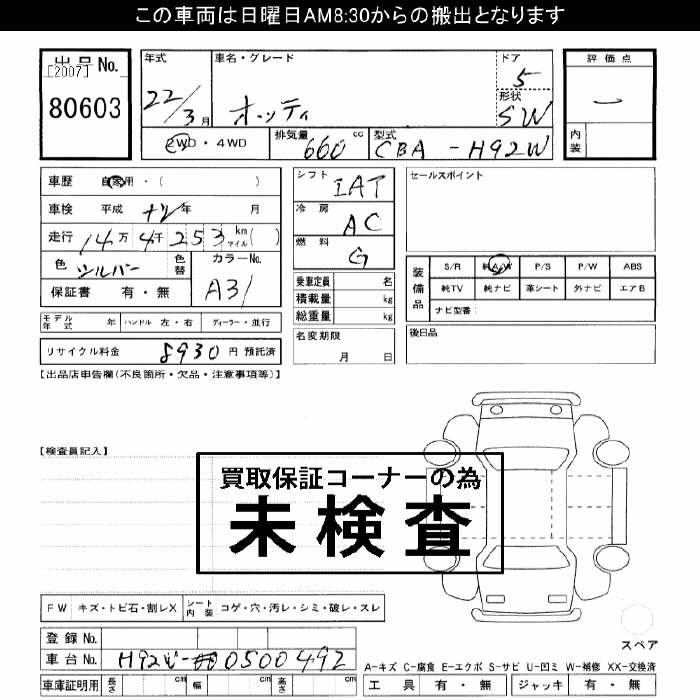 この車両は日曜日AM8:30からの搬出となります
出品No.
[2007]
80603
年式
22/3月
車名・グレード
オッティ
ドア
5
形状
SW
2WD・4WD
排気量
660 cc
型式
CBA-H92W
評価点
内装
車歴 自家用・( )
車検 平成 年 月
走行 14万4千253 km マイル( )
色 シルバー
色替
カラーNo.
A31
保証書 有・無
シフト
IAT
冷房
AC
燃料
G
乗車定員 名
積載量 kg
総重量 kg
セールスポイント
装備品
S/R 純A/W P/S P/W ABS
純TV 純ナビ 革シート 外ナビ エアB
ナビ型番:
モデル年式 年 ハンドル 左・右 ディーラー・並行
名変期限
月 日
後日品
リサイクル料金 8930 円 預託済
【出品店申告欄(不良箇所・欠品・注意事項等)】
【検査員記入】
買取保証コーナーの為
未検査
FW キズ・トビ石・割レX
シート内装 コゲ・穴・汚レ・シミ・破レ・スレ
スペア
登録No.
車台No. H92W-0500492
車庫証明用 長さ 幅 高さ
A-キズ C-腐食 E-エクボ S-サビ U-凹ミ W-補修 XX-交換済
工具 有・無 ジャッキ 有・無